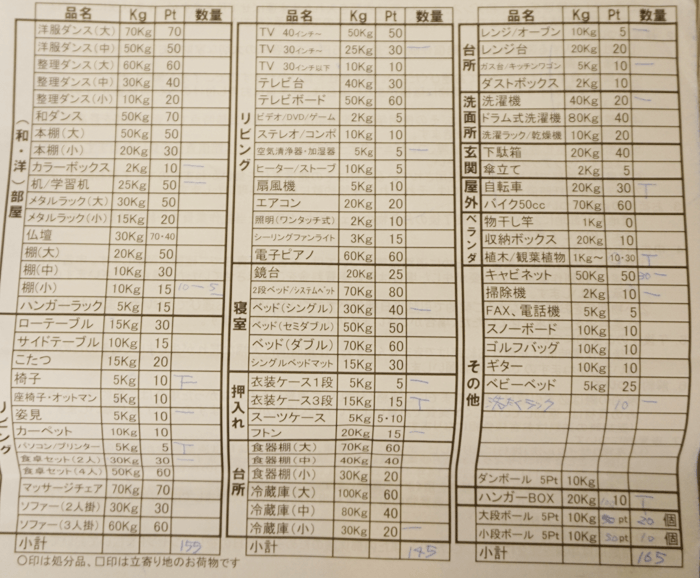 品名 Kg Pt 数量
(和・洋)部屋
洋服ダンス(大) 70Kg 70
洋服ダンス(中) 50Kg 50
整理ダンス(大) 60Kg 60
整理ダンス(中) 30Kg 40
整理ダンス(小) 10Kg 20
和ダンス 50Kg 70
本棚(大) 50Kg 50
本棚(小) 20Kg 30
カラーボックス 2Kg 10 一
机/学習机 25Kg 50 一
メタルラック(大) 30Kg 50
メタルラック(小) 15Kg 20
仏壇 30Kg 70・40
棚(大) 20Kg 50
棚(中) 10Kg 30
棚(小) 10Kg 15 10-5
ハンガーラック 5Kg 15
リビング
ローテーブル 15Kg 30
サイドテーブル 10Kg 15
こたつ 15Kg 20
椅子 5Kg 10 T
座椅子・オットマン 5Kg 10
姿見 5Kg 10 一
カーペット 10Kg 10
パソコン/プリンター 5Kg 5 T
食卓セット(2人) 30Kg 30 一
食卓セット(4人) 50Kg 60
マッサージチェア 70Kg 70
ソファー(2人掛) 30Kg 30
ソファー(3人掛) 60Kg 60
小計 155
〇印は処分品、□印は立寄り地のお荷物です
品名 Kg Pt 数量
リビング
TV 40インチ〜 50Kg 50
TV 30インチ〜 25Kg 30 一
TV 30インチ以下 10Kg 10
テレビ台 40Kg 30
テレビボード 50Kg 60
ビデオ/DVD/ゲーム 2Kg 5
ステレオ/コンポ 10Kg 10
空気清浄器・加湿器 5Kg 5 一
ヒーター/ストーブ 10Kg 5
扇風機 5Kg 10
エアコン 20Kg 20
照明(ワンタッチ式) 2Kg 10
シーリングファンライト 3Kg 15
電子ピアノ 60Kg 60
寝室
鏡台 20Kg 25
2段ベッド/システムベット 70Kg 80
ベッド(シングル) 30Kg 40 一
ベッド(セミダブル) 50Kg 50
ベッド(ダブル) 70Kg 60
シングルベッドマット 15Kg 30
押入れ
衣装ケース1段 5Kg 5 一
衣装ケース3段 15Kg 15 T
スーツケース 5Kg 5・10
フトン 20Kg 15 一
台所
食器棚(大) 70Kg 60
食器棚(中) 40Kg 40
食器棚(小) 30Kg 20
冷蔵庫(大) 100Kg 60
冷蔵庫(中) 80Kg 40
冷蔵庫(小) 30Kg 20 一
小計 145
品名 Kg Pt 数量
台所
レンジ/オーブン 10Kg 5 一
レンジ台 20Kg 20
ガス台/キッチンワゴン 5Kg 10 一
ダストボックス 2Kg 10
洗面所
洗濯機 40Kg 20 一
ドラム式洗濯機 80Kg 40
洗濯ラック/乾燥機 10Kg 20
玄関
下駄箱 20Kg 40
傘立て 2Kg 5
屋外
自転車 20Kg 30 T
バイク50cc 70Kg 60
ベランダ
物干し竿 1Kg 0
収納ボックス 20Kg 10
植木/観葉植物 1Kg〜 10・30 T
その他
キャビネット 50Kg 50 30一
掃除機 2Kg 10 一
FAX、電話機 5Kg 5
スノーボード 10Kg 10
ゴルフバッグ 10Kg 10
ギター 10Kg 10
ベビーベッド 5kg 25
10 一
ダンボール 5Pt 10Kg
ハンガーBOX 20Kg 10 T
大段ボール 5Pt 10Kg pt 20 個
小段ボール 5Pt 10Kg 50pt 10 個
小計 165